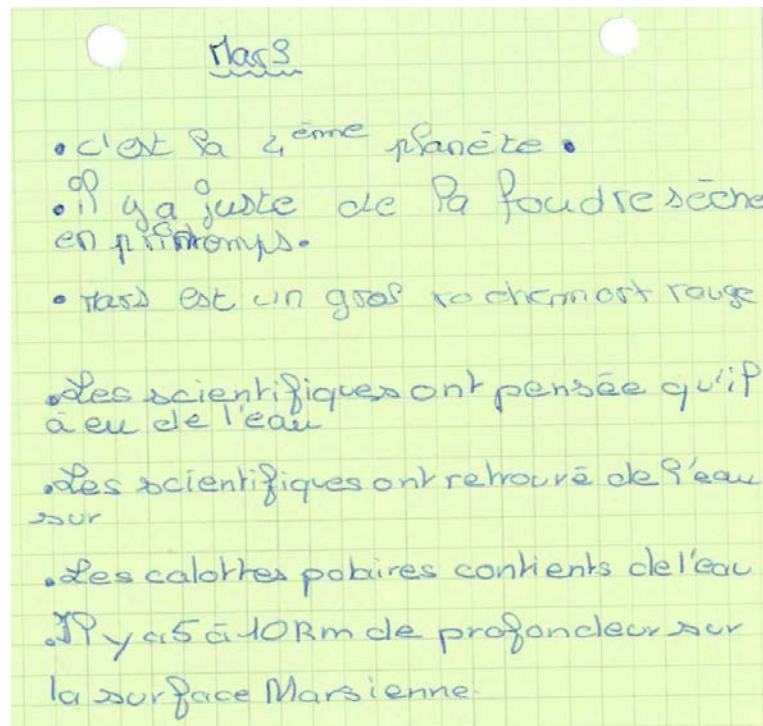 Mars
• c'est la 4ème planète •
• il y a juste de la foudre sèche
en printemps.
• Mars est un gros rocher mort rouge
• Les scientifiques ont pensée qu'il
à eu de l'eau
• Les scientifiques ont retrouvé de l'eau
sur
• Les calottes polaires contients de l'eau
• Il y a 5 à 10 km de profondeur sur
la surface Marsienne.